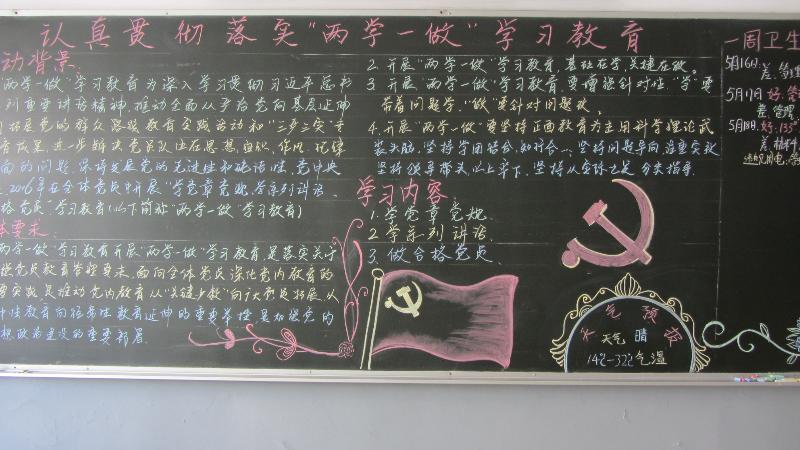 认真贯彻落实"两学一做"学习教育
动背景:
"两学一做"学习教育为深入学习贯彻习近平总书
列重要讲话精神,推动全面从严治党向基层延伸
拓展党的群众路线教育实践活动和"三严三实"
育成果,进一步解决党员队伍在思想、组织、作风、纪律
面的问题,保持发展党的先进性和纯洁性,党中央
2016年在全体党员中开展"学党章党规、学系列讲话、
格党员"学习教育(以下简称"两学一做"学习教育)
体要求:
两学一做"学习教育开展"两学一做"学习教育,是落实关于
党员教育管理要求,面向全体党员深化党内教育的
要实践,是推动党内教育从"关键少数"向广大党员拓展、从
性教育向经常性教育延伸的重要举措,是加强党的
想政治建设的重要部署.
2.开展"两学一做"学习教育,基础在学,关键在做.
3.开展"两学一做"学习教育,要增强针对性,"学"要
带着问题学,"做"要针对问题改.
4.开展"两学一做"要坚持正面教育为主,用科学理论武
装头脑,坚持学用结合,知行合一,坚持问题导向,注重实效
坚持领导带头,以上率下,坚持从实际出发,分类指导.
学习内容
1.学党章党规.
2.学系列讲话.
3.做合格党员
天气预报
天气 晴
14℃-32℃气温
一周卫生
5月16日:
差:管理
5月17日 好:
差:管理
5月18日 好:135
差: